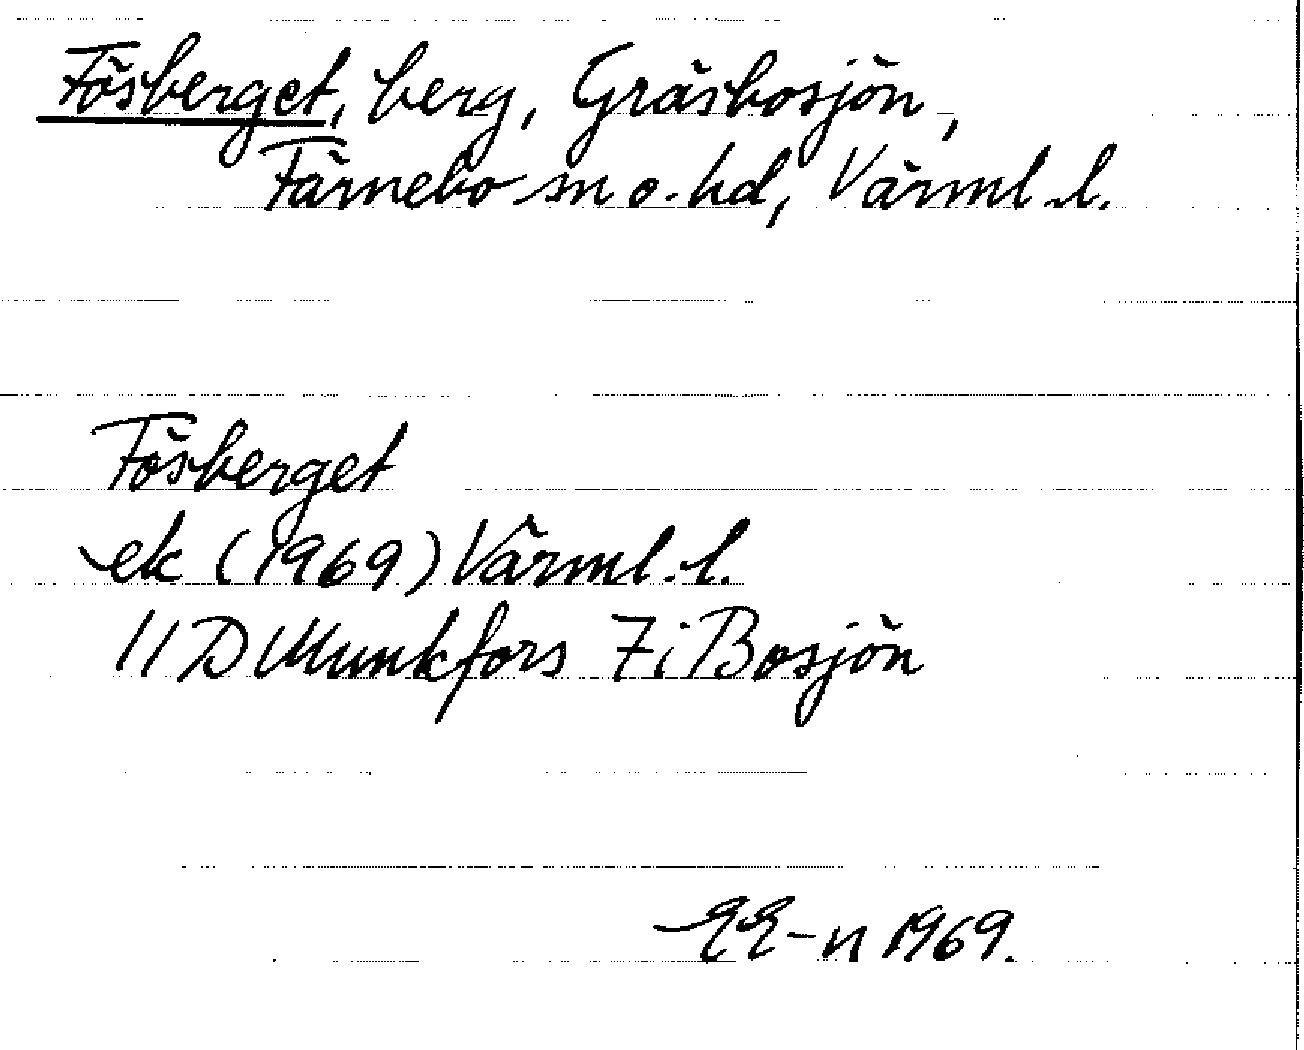 Fösberget, berg, Gräsbosjön,
Färnebo sn o. hd, Värml. l.
Fösberget
ek (1969) Värml. l.
11 D Munkfors 7i Bosjön
EE-n 1969.